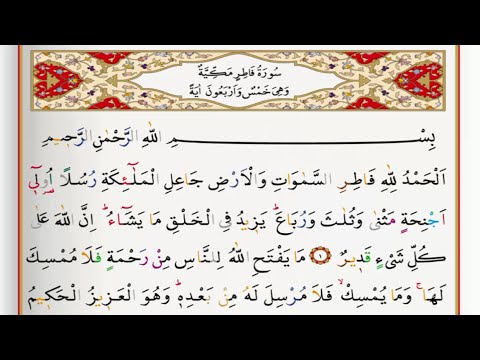 سُورَةُ فَاطِرٍ مَكِّيَّةٌ
وَهِيَ خَمْسٌ وَاَرْبَعُونَ اٰيَةً
بِسْــــــــــمِ اللّٰهِ الرَّحْمٰنِ الرَّح۪يمِ
اَلْحَمْدُ لِلّٰهِ فَاطِرِ السَّمٰوَاتِ وَالْاَرْضِ جَاعِلِ الْمَلٰٓئِكَةِ رُسُلًا اُو۬ل۪ٓي
اَجْنِحَةٍ مَثْنٰى وَثُلٰثَ وَرُبَاعَۜ يَز۪يدُ فِي الْخَلْقِ مَا يَشَٓاءُۜ اِنَّ اللّٰهَ عَلٰى
كُلِّ شَيْءٍ قَد۪يرٌ ﴿١﴾ مَا يَفْتَحِ اللّٰهُ لِلنَّاسِ مِنْ رَحْمَةٍ فَلَا مُمْسِكَ
لَهَاۚ وَمَا يُمْسِكْۙ فَلَا مُرْسِلَ لَهُ مِنْ بَعْدِه۪ۜ وَهُوَ الْعَز۪يزُ الْحَك۪يمُ